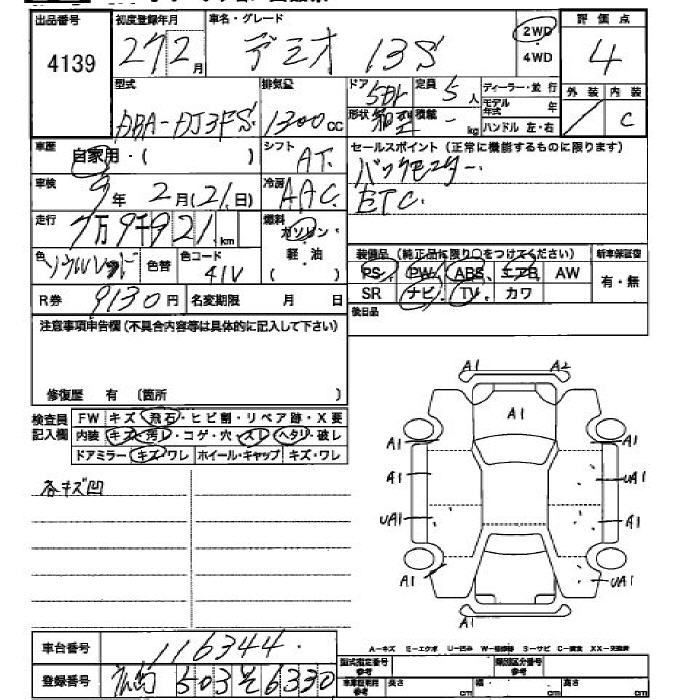 出品番号 初度登録年月 車名・グレード 評価点
4139 27 2月 デミオ 13S 2WD 4WD 4
型式 排気量 ドア 5Dr 定員 5人 ディーラー・並行 外装 内装
DBA-DJ3FS 1300cc 形状 箱型 積載 - kg モデル年式 年 C
ハンドル 左・右
車歴 自家用・( ) シフト AT セールスポイント(正常に機能するものに限ります)
バックモニター
車検 9年2月(21日) 冷房 AAC ETC
走行 7万9千921km 燃料 ガソリン・軽・油 ( )
色 ソウルレッド 色替 色コード 41V 装備品(純正品に限り○をつけてください) 新車保証書
PS PW ABS エアB AW 有・無
R券 9130円 名変期限 月 日 SR ナビ TV カワ
注意事項申告欄(不具合内容等は具体的に記入して下さい) 後日品
修復歴 有 〔箇所 〕
検査員記入欄 FW キズ・飛石・ヒビ割・リペア跡・X要
内装 キズ・汚レ・コゲ・穴・スレ・ヘタリ・破レ
ドアミラー キズ・ワレ ホイール・キャップ キズ・ワレ
各キズ凹
A1 A2
A1
A1 A1
A1 UA1
UA1 A1
A1 UA1
A1
車台番号 116344
A-キズ E-エクボ U-凹ミ W-補修跡 S-サビ C-腐食 XX-交換済
登録番号 広島 503 そ 6330
型式指定番号 参考 類別区分番号 参考
車庫証明用 参考 長さ cm 幅 cm 高さ cm